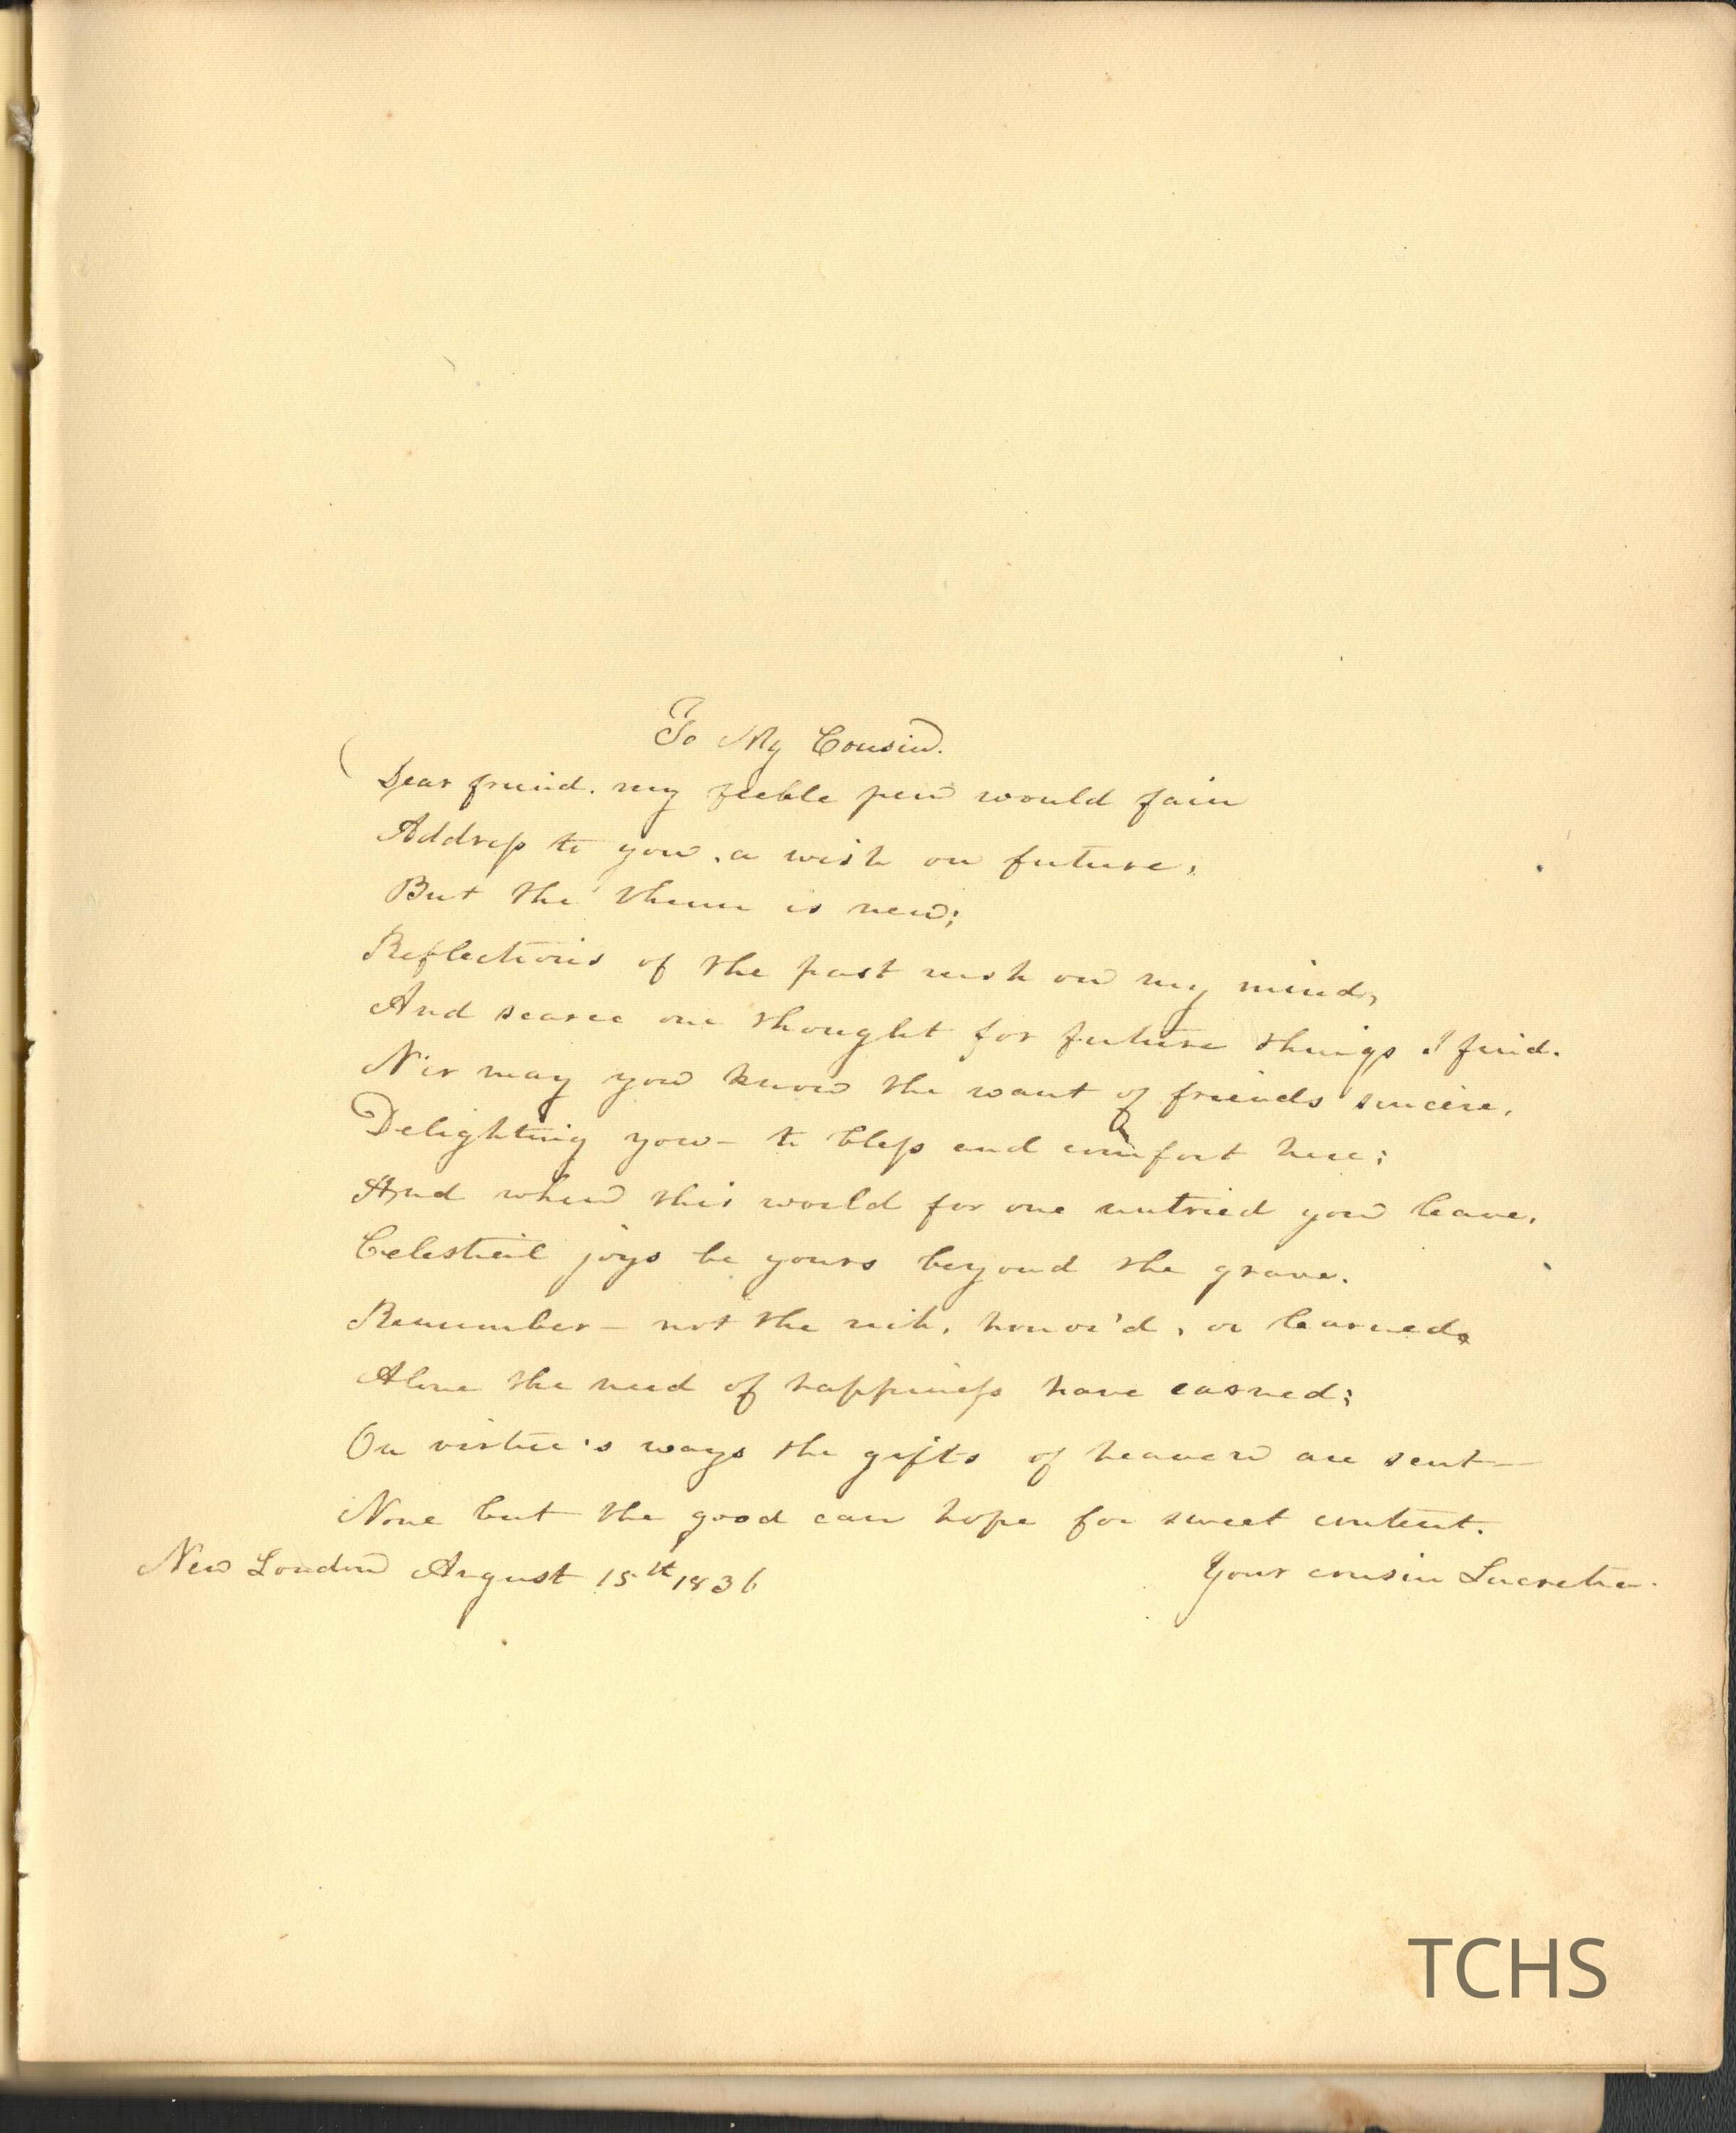 To My Cousin.
Dear friend. my feeble pen would fain
Address to you, a wish on future,
But the theme is new;
Reflections of the past rush on my mind,
And scarce one thought for future things I find.
Ne'er may you know the want of friends sincere,
Delighting you - to bless and comfort here;
And when this world for one untried you leave,
Celestial joys be yours beyond the grave.
Remember - not the rich, honor'd, or learned,
Alone the meed of happiness have earned;
On virtue's ways the gifts of heaven are sent—
None but the good can hope for sweet content.
New London August 15th 1836 Your cousin Lucretia.
TCHS